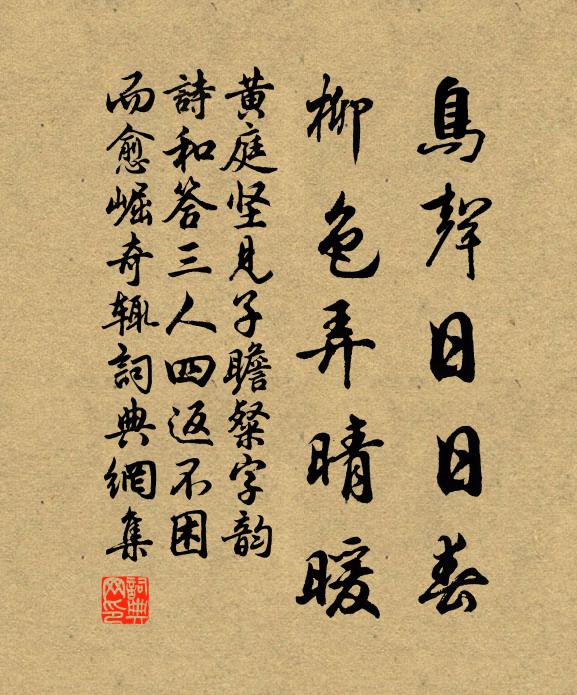 鳥聲日日春
柳色弄晴暖
黄庭坚見子瞻粲字韵
詩和答三人四返不困
而愈崛奇辄詞典網集
詞典网印